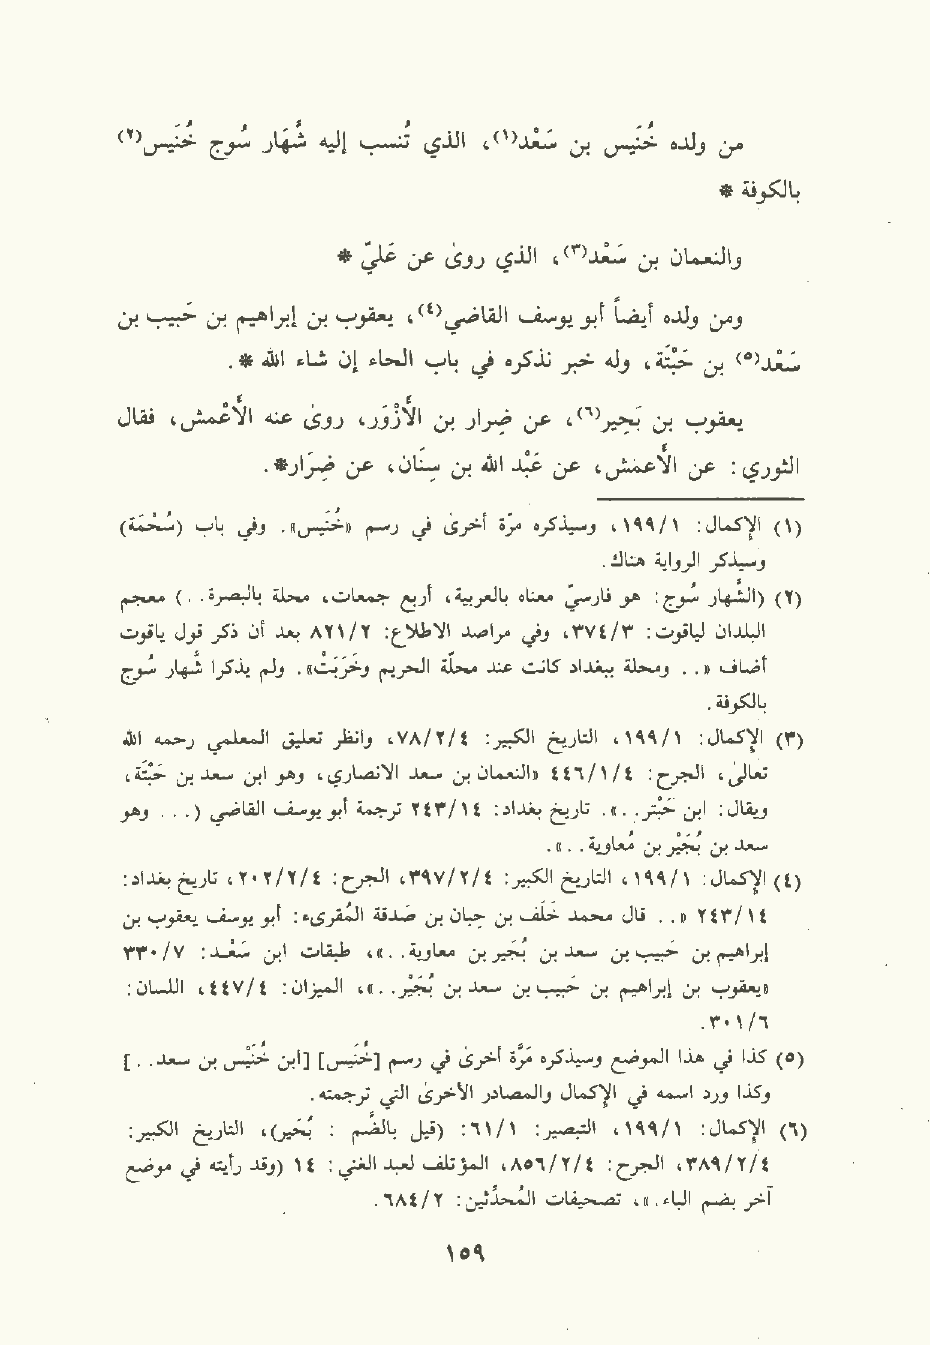 من ولده خُنَيس بن سَعْد(١)، الذي تُنسب إليه شَّهَار سُوج خُنَيس(٢)
بالكوفة *
والنعمان بن سَعْد(٣)، الذي روىٰ عن عَليّ *
ومن ولده أيضاً أبو يوسف القاضي(٤)، يعقوب بن إبراهيم بن حَبيب بن
سَعْد(٥) بن حَبْتَة، وله خبر نذكره في باب الحاء إن شاء الله *.
يعقوب بن بَحِير(٦)، عن ضِرار بن الأَزْوَر، روىٰ عنه الأَعْمش، فقال
الثوري: عن الأَعمش، عن عَبْد الله بن سِنَان، عن ضِرَار*.
(١) الإكمال: ١/١٩٩، وسيذكره مرّة أخرىٰ في رسم «خُنَيس». وفي باب (سُحْمَة)
وسيذكر الرواية هناك.
(٢) (الشَّهار سُوج: هو فارسيّ معناه بالعربية، أربع جهات، محلة بالبصرة. .) معجم
البلدان لياقوت: ٣/٣٧٤، وفي مراصد الإطلاع: ٢/٨٢١ بعد أن ذكر قول ياقوت
أضاف «. . ومحلة ببغداد كانت عند محلّة الحريم وخَرَبَتْ». ولم يذكرا شَهار سُوج
بالكوفة.
(٣) الإكمال: ١/١٩٩، التاريخ الكبير: ٤/٢/٧٨، وانظر تعليق المعلمي رحمه الله
تعالىٰ، الجرح: ٤/١/٤٤٦ «النعمان بن سعد الأنصاري، وهو ابن سعد بن حَبْتَة،
ويقال: ابن حَبْتر. .». تاريخ بغداد: ١٤/٢٤٣ ترجمة أبو يوسف القاضي (. . . وهو
سعد بن بُجَيْر بن مُعاوية. .».
(٤) الإكمال: ١/١٩٩، التاريخ الكبير: ٤/٢/٣٩٧، الجرح: ٤/٢/٢٠٢، تاريخ بغداد:
١٤/٢٤٣ «. . قال محمد خَلَف بن حِيان بن صَدقة المُقرىء: أبو يوسف يعقوب بن
إبراهيم بن حَبيب بن سعد بن بُجَير بن معاوية. .»، طبقات ابن سَعْد: ٧/٣٣٠
«يعقوب بن إبراهيم بن حَبيب بن سعد بن بُجَيْر. .»، الميزان: ٤/٤٤٧، اللسان:
٦/٣٠١.
(٥) كذا في هذا الموضع وسيذكره مَرَّة أخرىٰ في رسم [خُنَيس] [ابن خُنَيْس بن سعد. .]
وكذا ورد اسمه في الإكمال والمصادر الأخرىٰ التي ترجمته.
(٦) الإكمال: ١/١٩٩، التبصير: ١/٦١: (قيل بالضَّم : بُحَير)، التاريخ الكبير:
٤/٢/٣٨٩، الجرح: ٤/٢/٨٥٦، المؤتلف لعبد الغني: ١٤ (وقد رأيته في موضع
آخر بضم الباء.»، تصحيفات المُحدِّثين: ٢/٦٨٤.
١٥٩